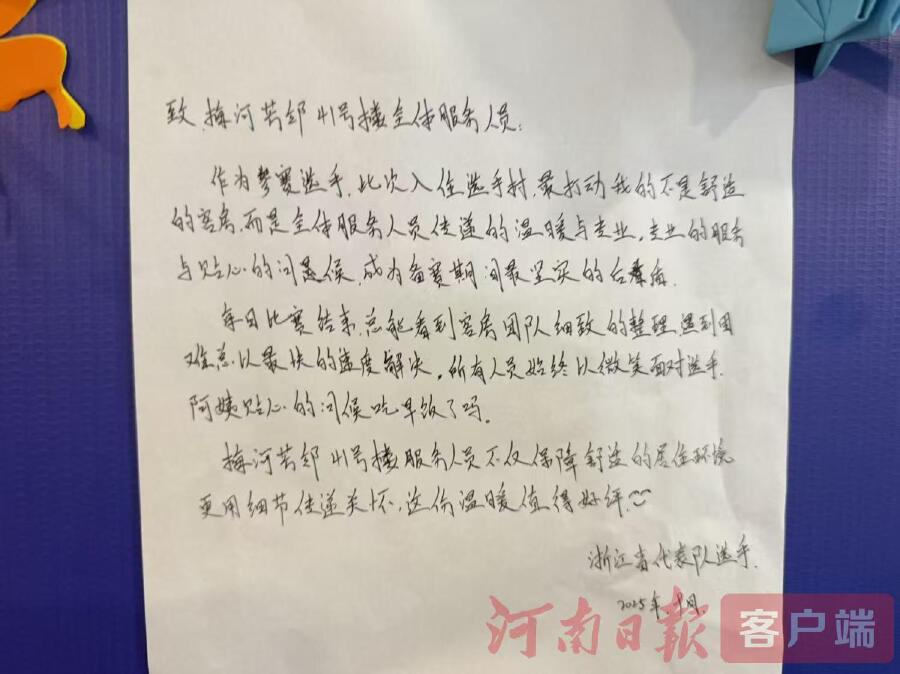 致梅河芳邻41号楼全体服务人员:
作为参赛选手,此次入住选手村,最打动我的不是舒适
的客房,而是全体服务人员传递的温暖与专业,专业的服务
与贴心的问候,成为备赛期间最坚实的后盾.
每日比赛结束,总能看到客房团队细致的整理,遇到困
难总以最快的速度解决,所有人员始终以微笑面对选手.
阿姨贴心的问候吃早饭了吗.
梅河芳邻41号楼服务人员不仅保障舒适的居住环境
更用细节传递关怀,这份温暖值得好评.
浙江省代表队选手.
2025年 月
河南日报 客户端